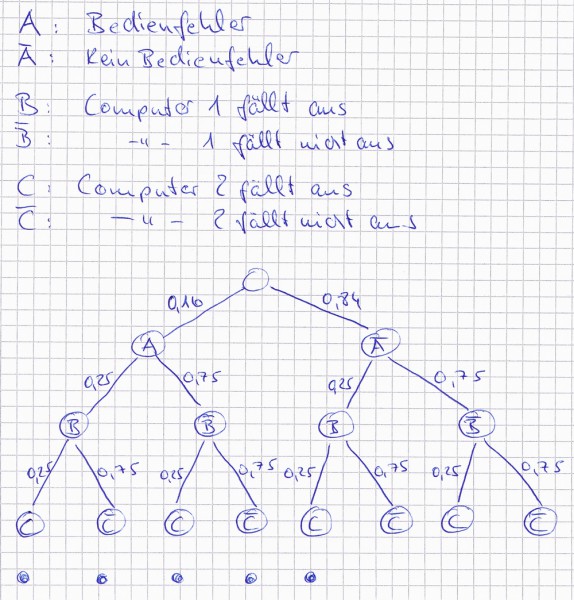 A : Bedienfehler
Ā : Kein Bedienfehler
B : Computer 1 fällt aus
B̄ : -"- 1 fällt nicht aus
C : Computer 2 fällt aus
C̄ : -"- 2 fällt nicht aus
0,16 0,84
A Ā
0,25 0,75 0,25 0,75
B B̄ B B̄
0,25 0,75 0,25 0,75 0,25 0,75 0,25 0,75
C C̄ C C̄ C C̄ C C̄